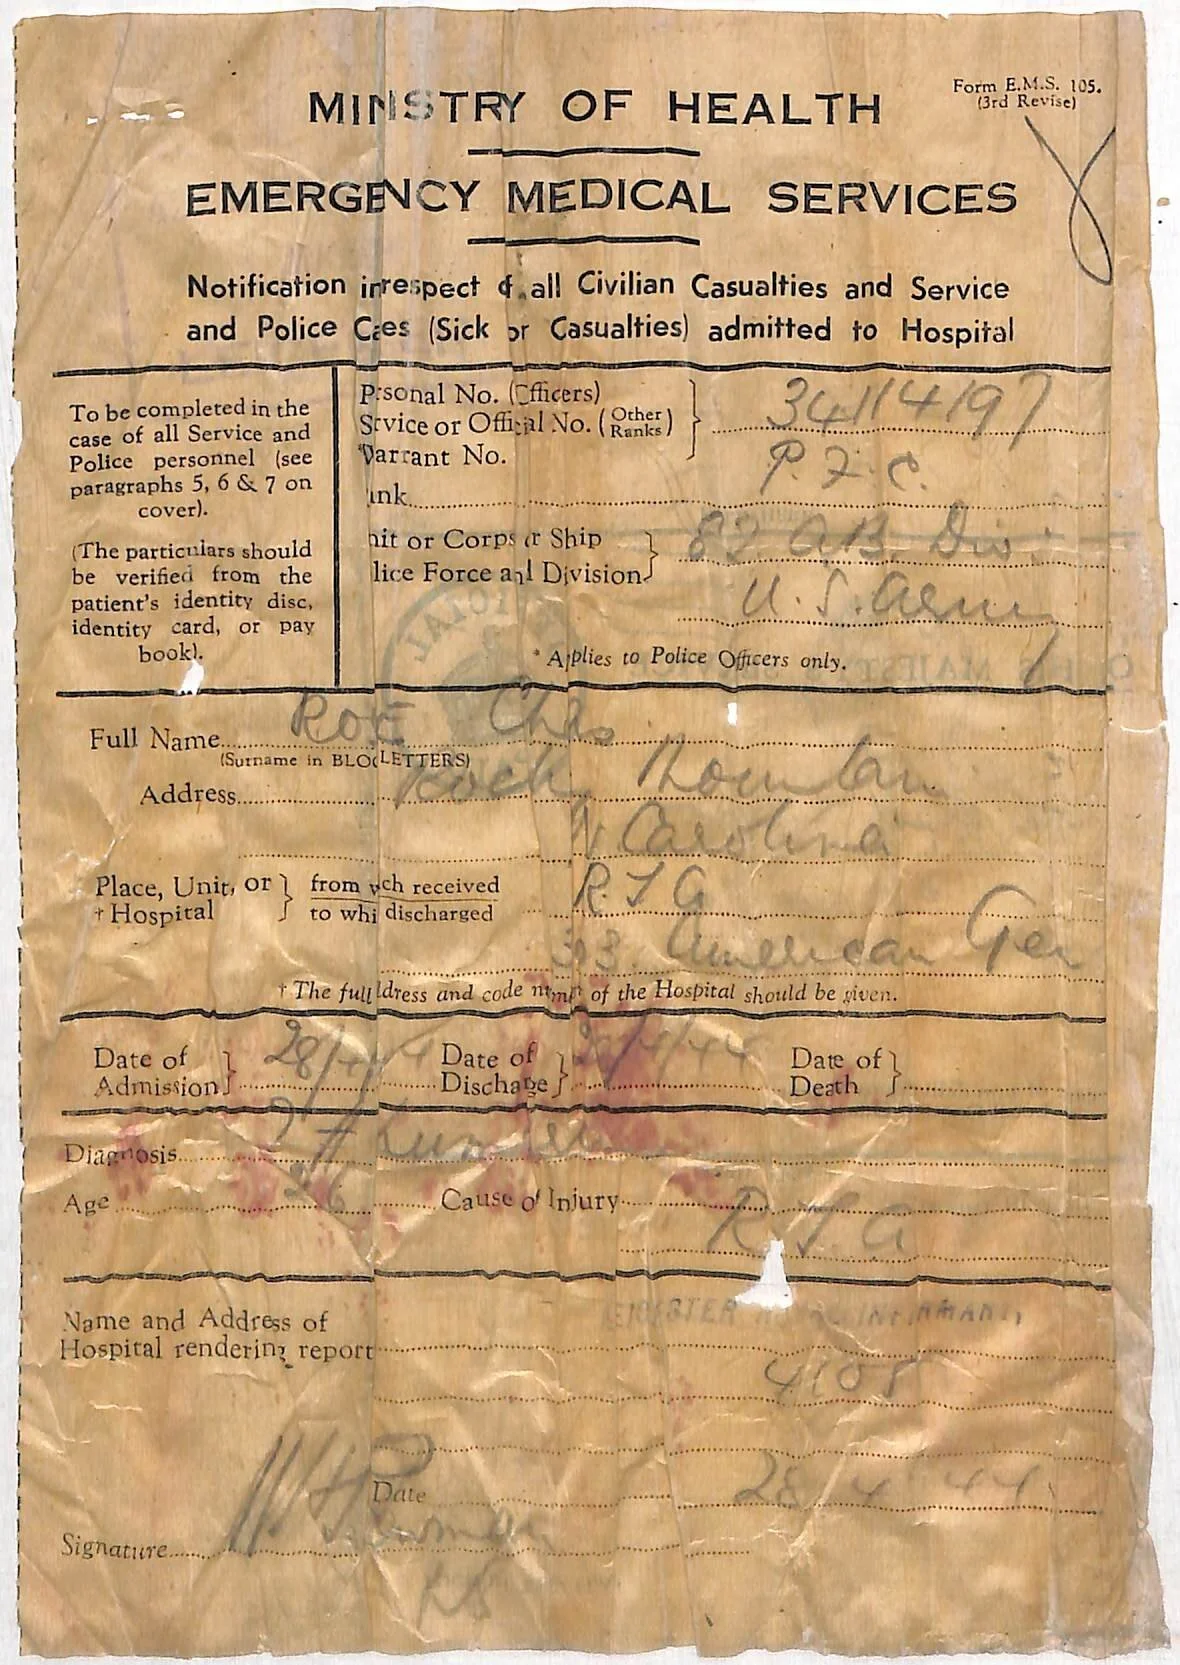 Form E.M.S. 105.
(3rd Revise)
MINSTRY OF HEALTH
EMERGENCY MEDICAL SERVICES
Notification in respect of all Civilian Casualties and Service
and Police Caes (Sick or Casualties) admitted to Hospital
To be completed in the
case of all Service and
Police personnel (see
paragraphs 5, 6 & 7 on
cover).
(The particulars should
be verified from the
patient's identity disc,
identity card, or pay
book).
Personal No. (Officers)
Service or Official No. (Other Ranks) 34114197
*Warrant No.
ank P.F.C.
nit or Corps or Ship 82 A.B. Div.
lice Force and Division U.S. Army
* Applies to Police Officers only.
Full Name ROE Chas
(Surname in BLOC LETTERS)
Address Rock Mountain
N. Carolina
Place, Unit, or from which received R T A
† Hospital to whi discharged 303. American Gen
† The full ddress and code num of the Hospital should be given.
Date of Admission 28/4/44 Date of Discharge /4/44 Date of Death
Diagnosis
Age 26 Cause of Injury R T A
Name and Address of LEICESTER ROYAL INFIRMARY,
Hospital rendering report
4108
Date 28 4 44
Signature